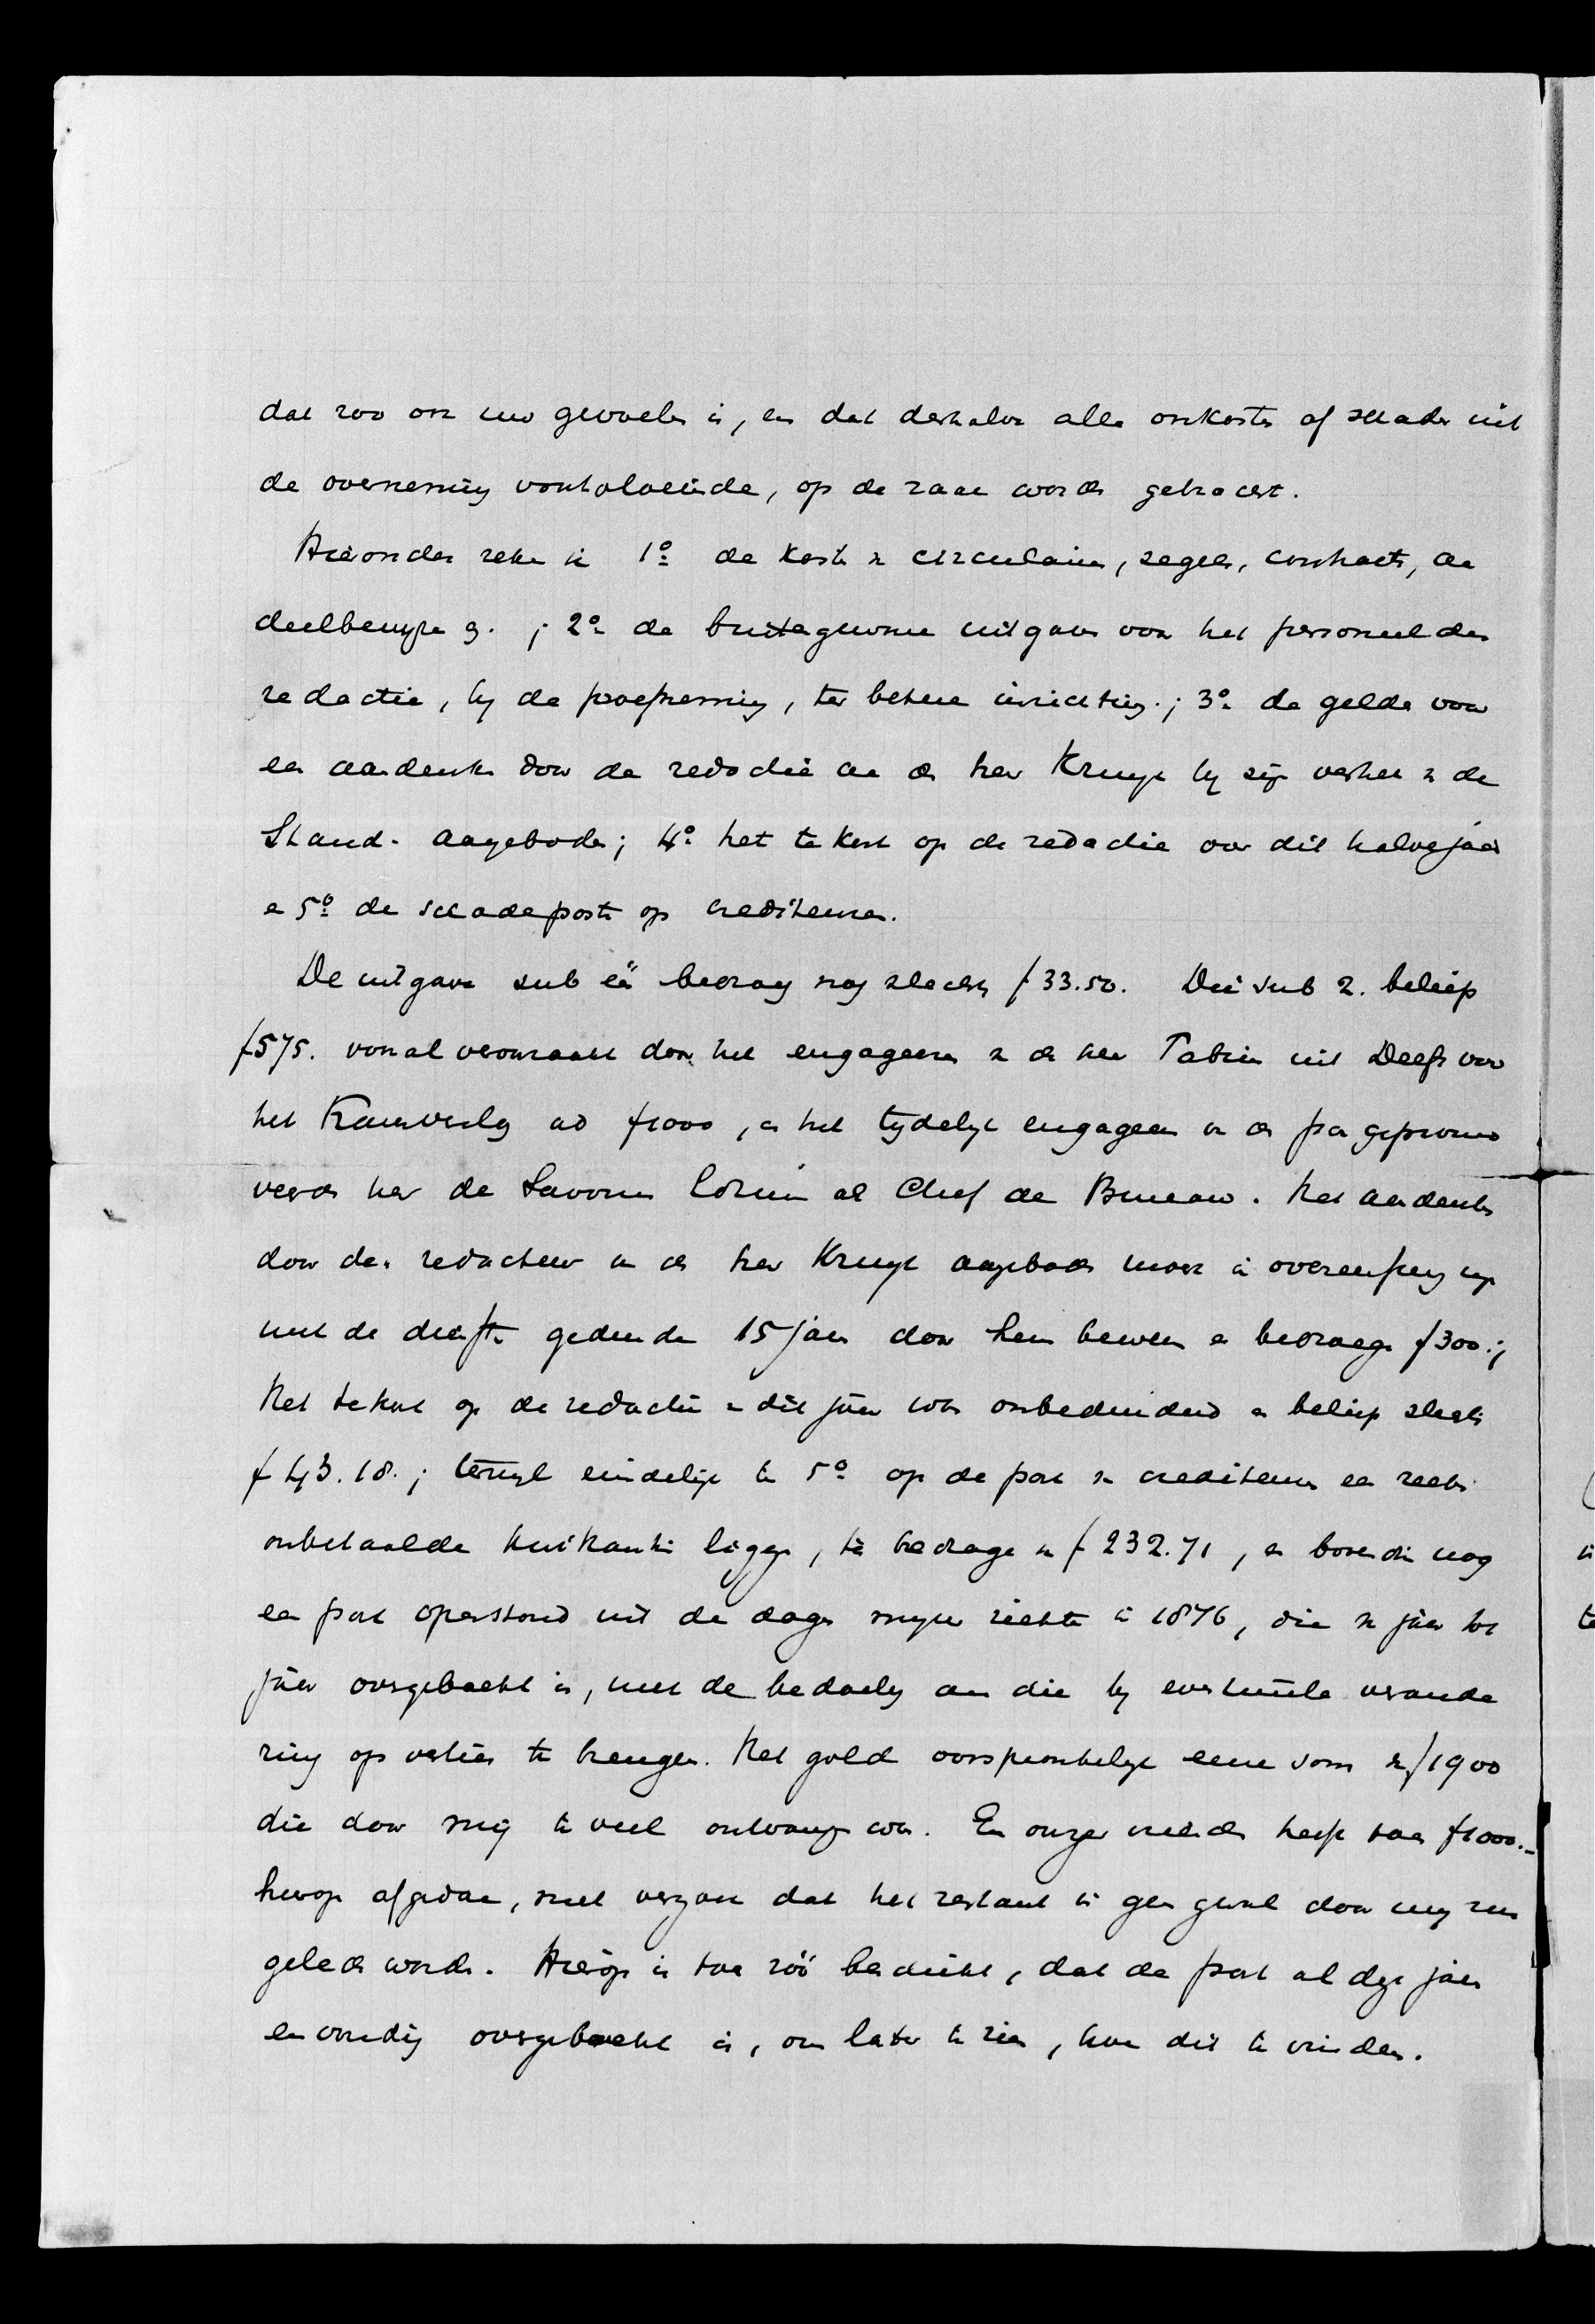 dat zoo ook uw gevoelen is, en dat derhalve alle onkosten of schade uit
de overneming voortvloeiende, op de zaak worde gebracht.
Hieronder reken ik 1º de kosten v. circulaires, zegels, contracten, aan
deelbewijzen z. ; 2º de buitengewone uitgaven voor het personeel der
redactie, bij de proefneming, ter betere inrichting; 3º de gelden voor
een aandenken door de redactie aan den heer Kruyt bij zijn vertrek v. de
Stand. aangeboden; 4º het te kort op de redactie over dit halvejaar
en 5º de schadeposten op crediteuren.
De uitgave sub één bedroeg nog slechts ƒ 33.50. Die sub 2. beliep
ƒ 575. vooral veroorzaakt door het engageeren v. den heer Tabin uit Delft voor
het Kamerverslag ad ƒ1000, en het tydelyk engageeren v. den pas gepromo
veerden heer de Savornin Lohman als Chef de Bureau. Het aandenken
door den redacteur aan den heer Kruyt aangeboden moest in overeenstemming zyn
met de diensten gedurende 15 jaar door hem bewezen en bedroeg ƒ300.;
Het te kort op de redactie in dit jaar was onbeduidend en beliep slechts
ƒ 43.18.; terwyl eindelijk te 5º op de post v. crediteuren een reeks
onbetaalde kwitantien liggen, te bedrage v. ƒ 232.71, en bovendien nog
een post openstond uit de dagen mijner ziekte in 1876, die v. jaar tot
jaar overgeboekt is, met de bedoeling om die by eventueele verande
ring op verlies te brengen. Het gold oorspronkelyk eene som v. ƒ1900
die door mij te veel ontvangen was. En onzer vrienden heeft toen ƒ1000.-
hierop afgedaan, met verzoek dat het restant in geen geval door my zou
geleden worden. Hierop is toen zóó besloten, dat de post al deze jaren
eenvoudig overgeboekt is, om later te zien, hoe dit te vinden.